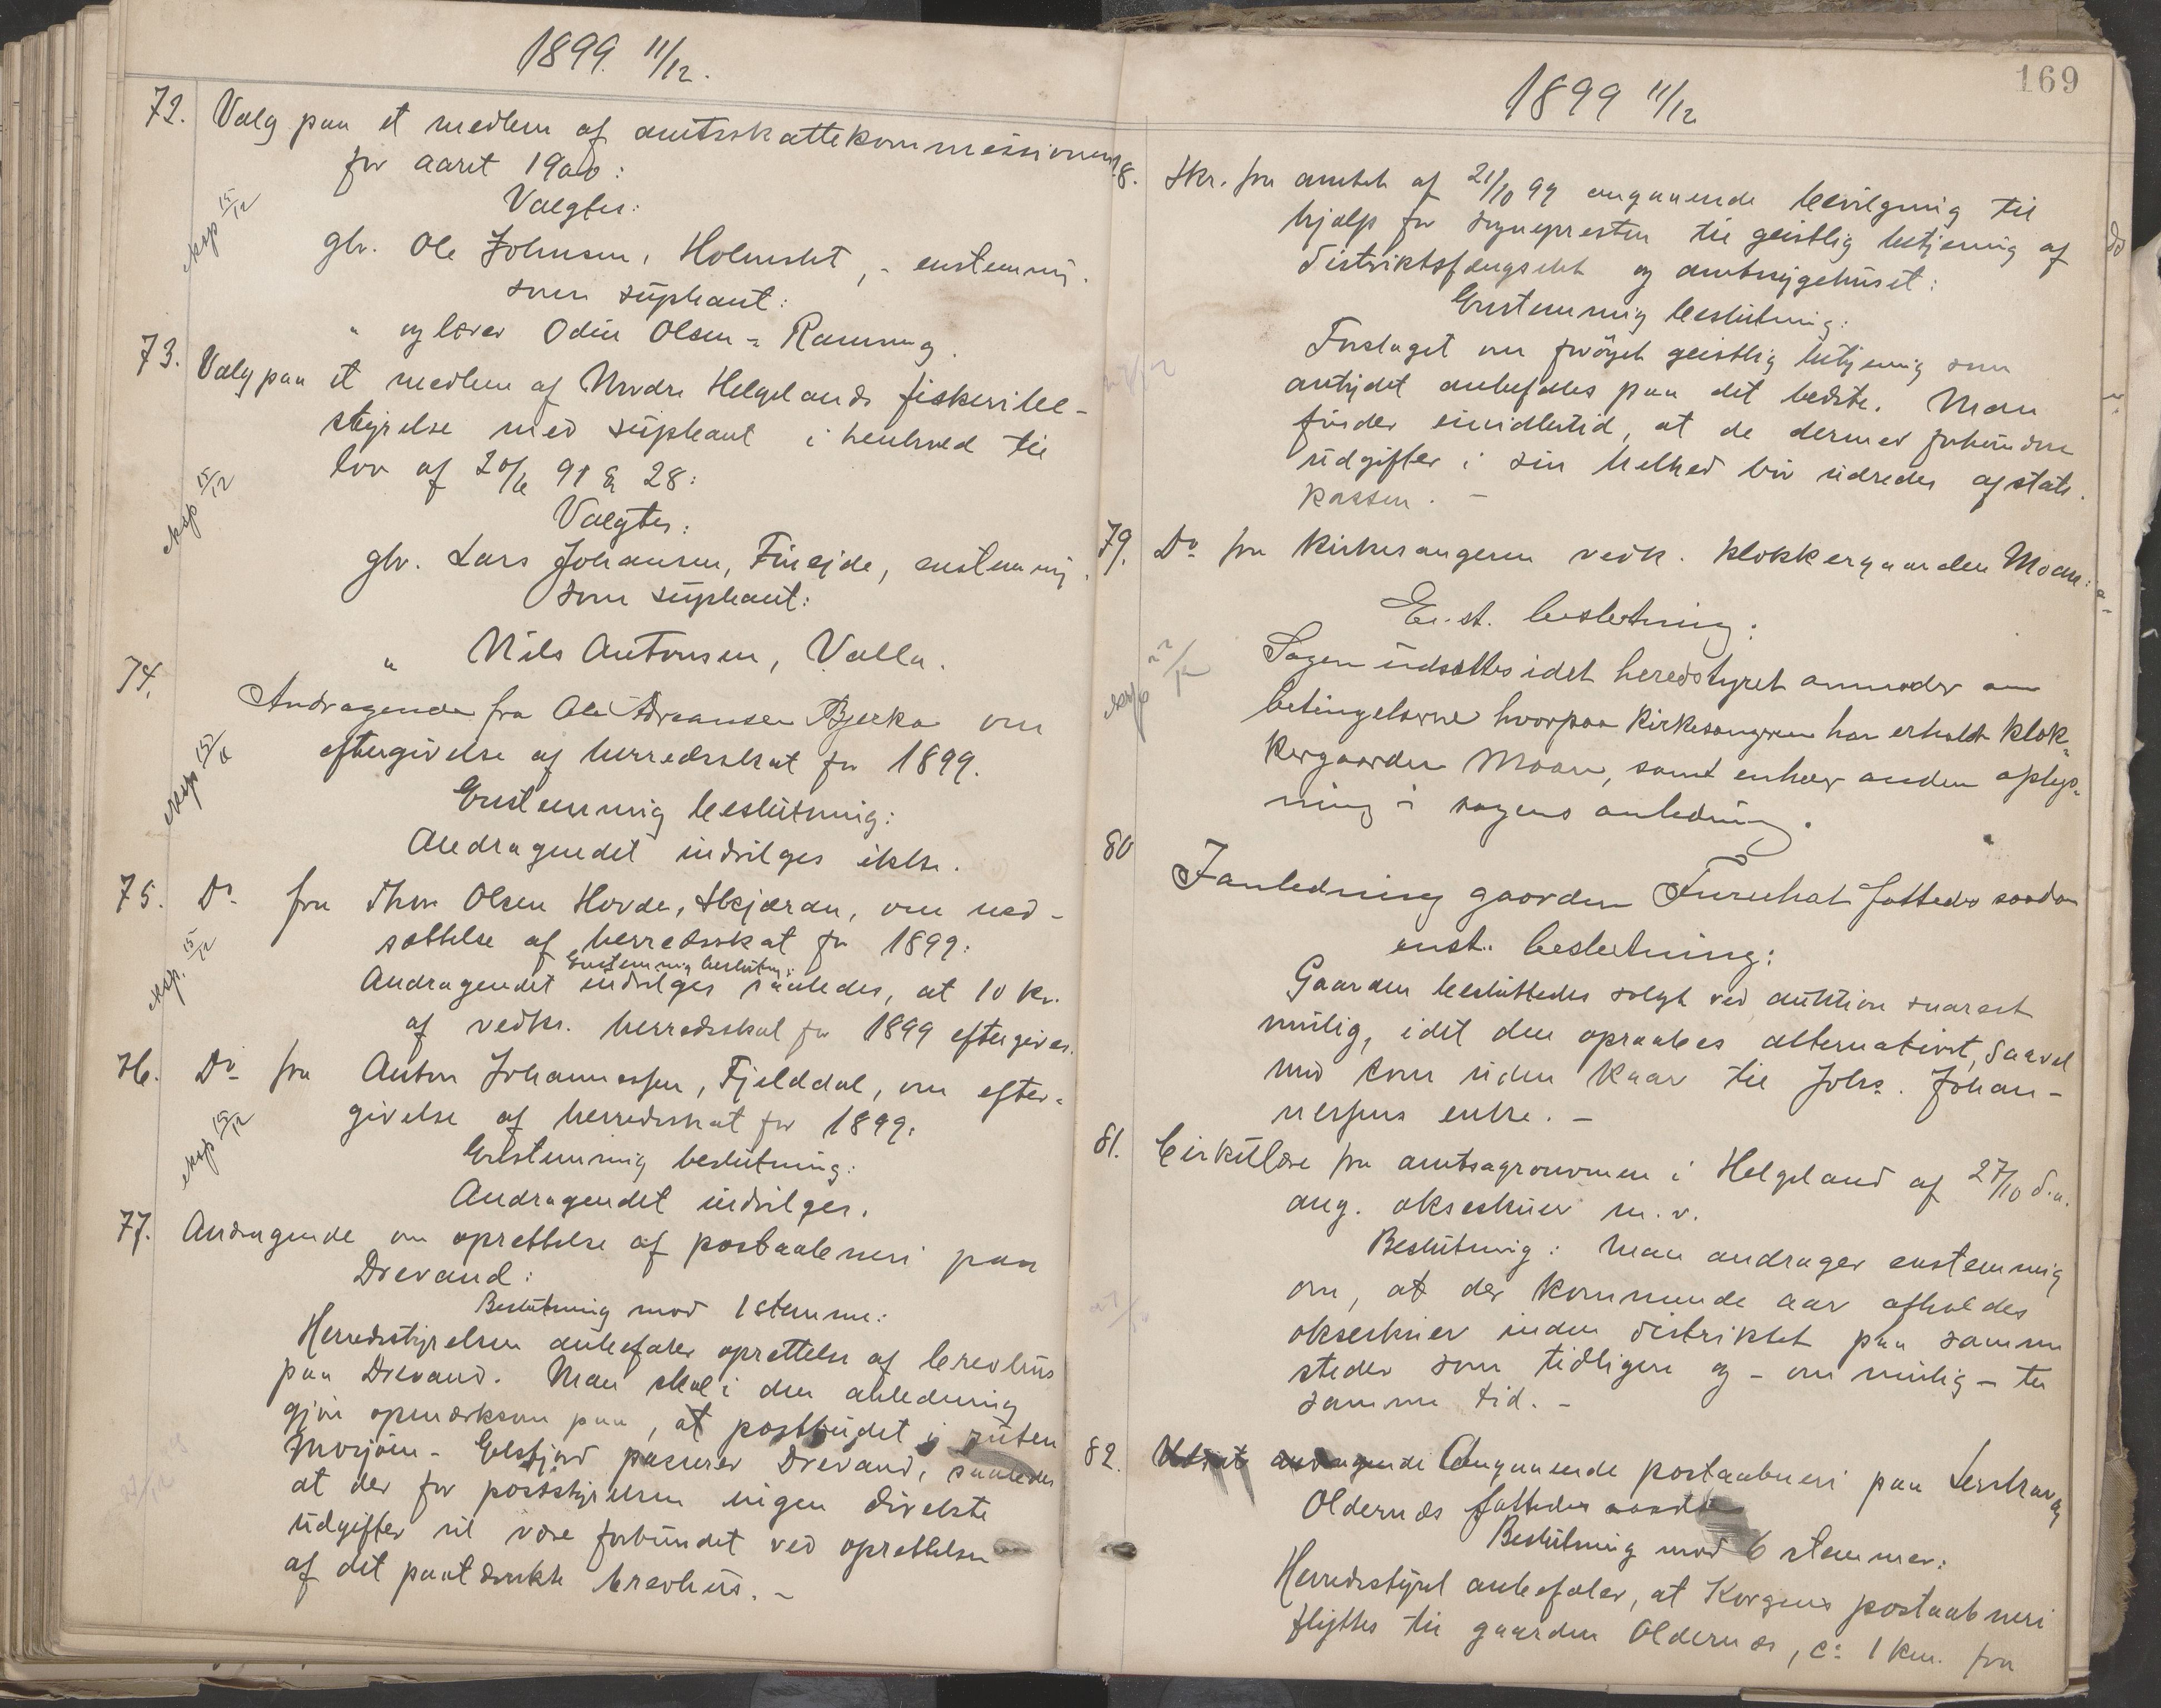 1899. 11/12.
72. Valg paa et medlem af amtsskattekommissionen
for aaret 1900:
Valgtes:
eksp 15/12
gbr. Ole Johnsen, Holmslet, - enstemmig.
som suppleant:
" og lærer Odin Olsen - Ramnaag.
73. Valg paa et medlem af Nordre Helgelands fiskeribe-
styrelse med suppleant i henhold til
lov af 20/6 91 § 28:
eksp 15/12
Valgtes:
gbr. Lars Johansen, Fineide, enstemmig.
som suppleant:
" Nils Antonsen, Valla.
74.
Andragende fra Ole Adreansen Bjerka om
eftergivelse af herredsskat for 1899.
eksp 15/12
Enstemmig beslutning:
Andragendet indvilges ikke.
75. Do fra Thor Olsen Hovde, Skjæran, om ned-
sættelse af herredsskat for 1899:
Enstemmig beslutn.:
eksp. 15/12
Andragendet indvilges saaledes, at 10 kr.
af vedk. herredsskat for 1899 eftergives.
76. Do fra Anton Johannessen, Fjelddal, om efter-
givelse af herredsskat for 1899.
eksp 15/12
Enstemmig beslutning:
Andragendet indvilges.
77. Andragende om oprettelse af postaabneri paa
Drevand:
Beslutning mod 1 stemme:
Herredsstyrelsen anbefaler oprettelse af brevhus
paa Drevand. Man skal i den anledning
gjøre opmærksom paa, at postbudet i ruten
Mosjøen - Elsfjord passerer Drevand, saaledes
at der for poststyrelsen ingen direkte
udgifter vil være forbundet ved oprettelsen
af det paatænkte brevhus. -
169
1899 11/12
8. Skr. fra amtet af 21/10 99 angaaende bevilgning til
hjælp for sogneprestens til geistlig betjening af
distriktsfængslet og amtssygehuset:
Enstemmig beslutning:
Forslaget om forøget geistlig betjening som
antydet anbefales paa det bedste. Man
finder imidlertid, at de dermed forbundne
udgifter i sin helhed bør udredes af stats-
kassen. -
79. Do fra kirkesangeren vedk. klokkergaarden Moen:
En.st. beslutning:
eksp 22/12
Sagen udsættes idet heredstyret anmoder om
betingelserne hvorpaa kirkesangeren har erholdt klok-
kergaarden Moen, samt enhver anden oplys-
ning i sagens anledning.
80
I anledning gaarden Furuhat fattedes saadan
enst. beslutning:
Gaarden besluttedes solgt ved auktion snarest
mulig, idet den opraabes alternativt, saavel
med som uden kaar til Johs. Johan-
nessens enke. -
81. Cirkulære fra amtsagronomen i Helgeland af 27/10 d.a.
ang. okseskuer m.v.
Beslutning: Man andrager enstemmig
om, at der kommende aar afholdes
okseskuer inden distriktet paa samme
steder som tidligere og - om mulig - til
samme tid. -
82. Angaaende postaabneri paa Leirskar og
Oldernæs fattedes saadan
Beslutning mod 6 stemmer:
Herredsstyret anbefaler, at Korgens postaabneri
flyttes til gaarden Oldernæs, ca 1 km. fra